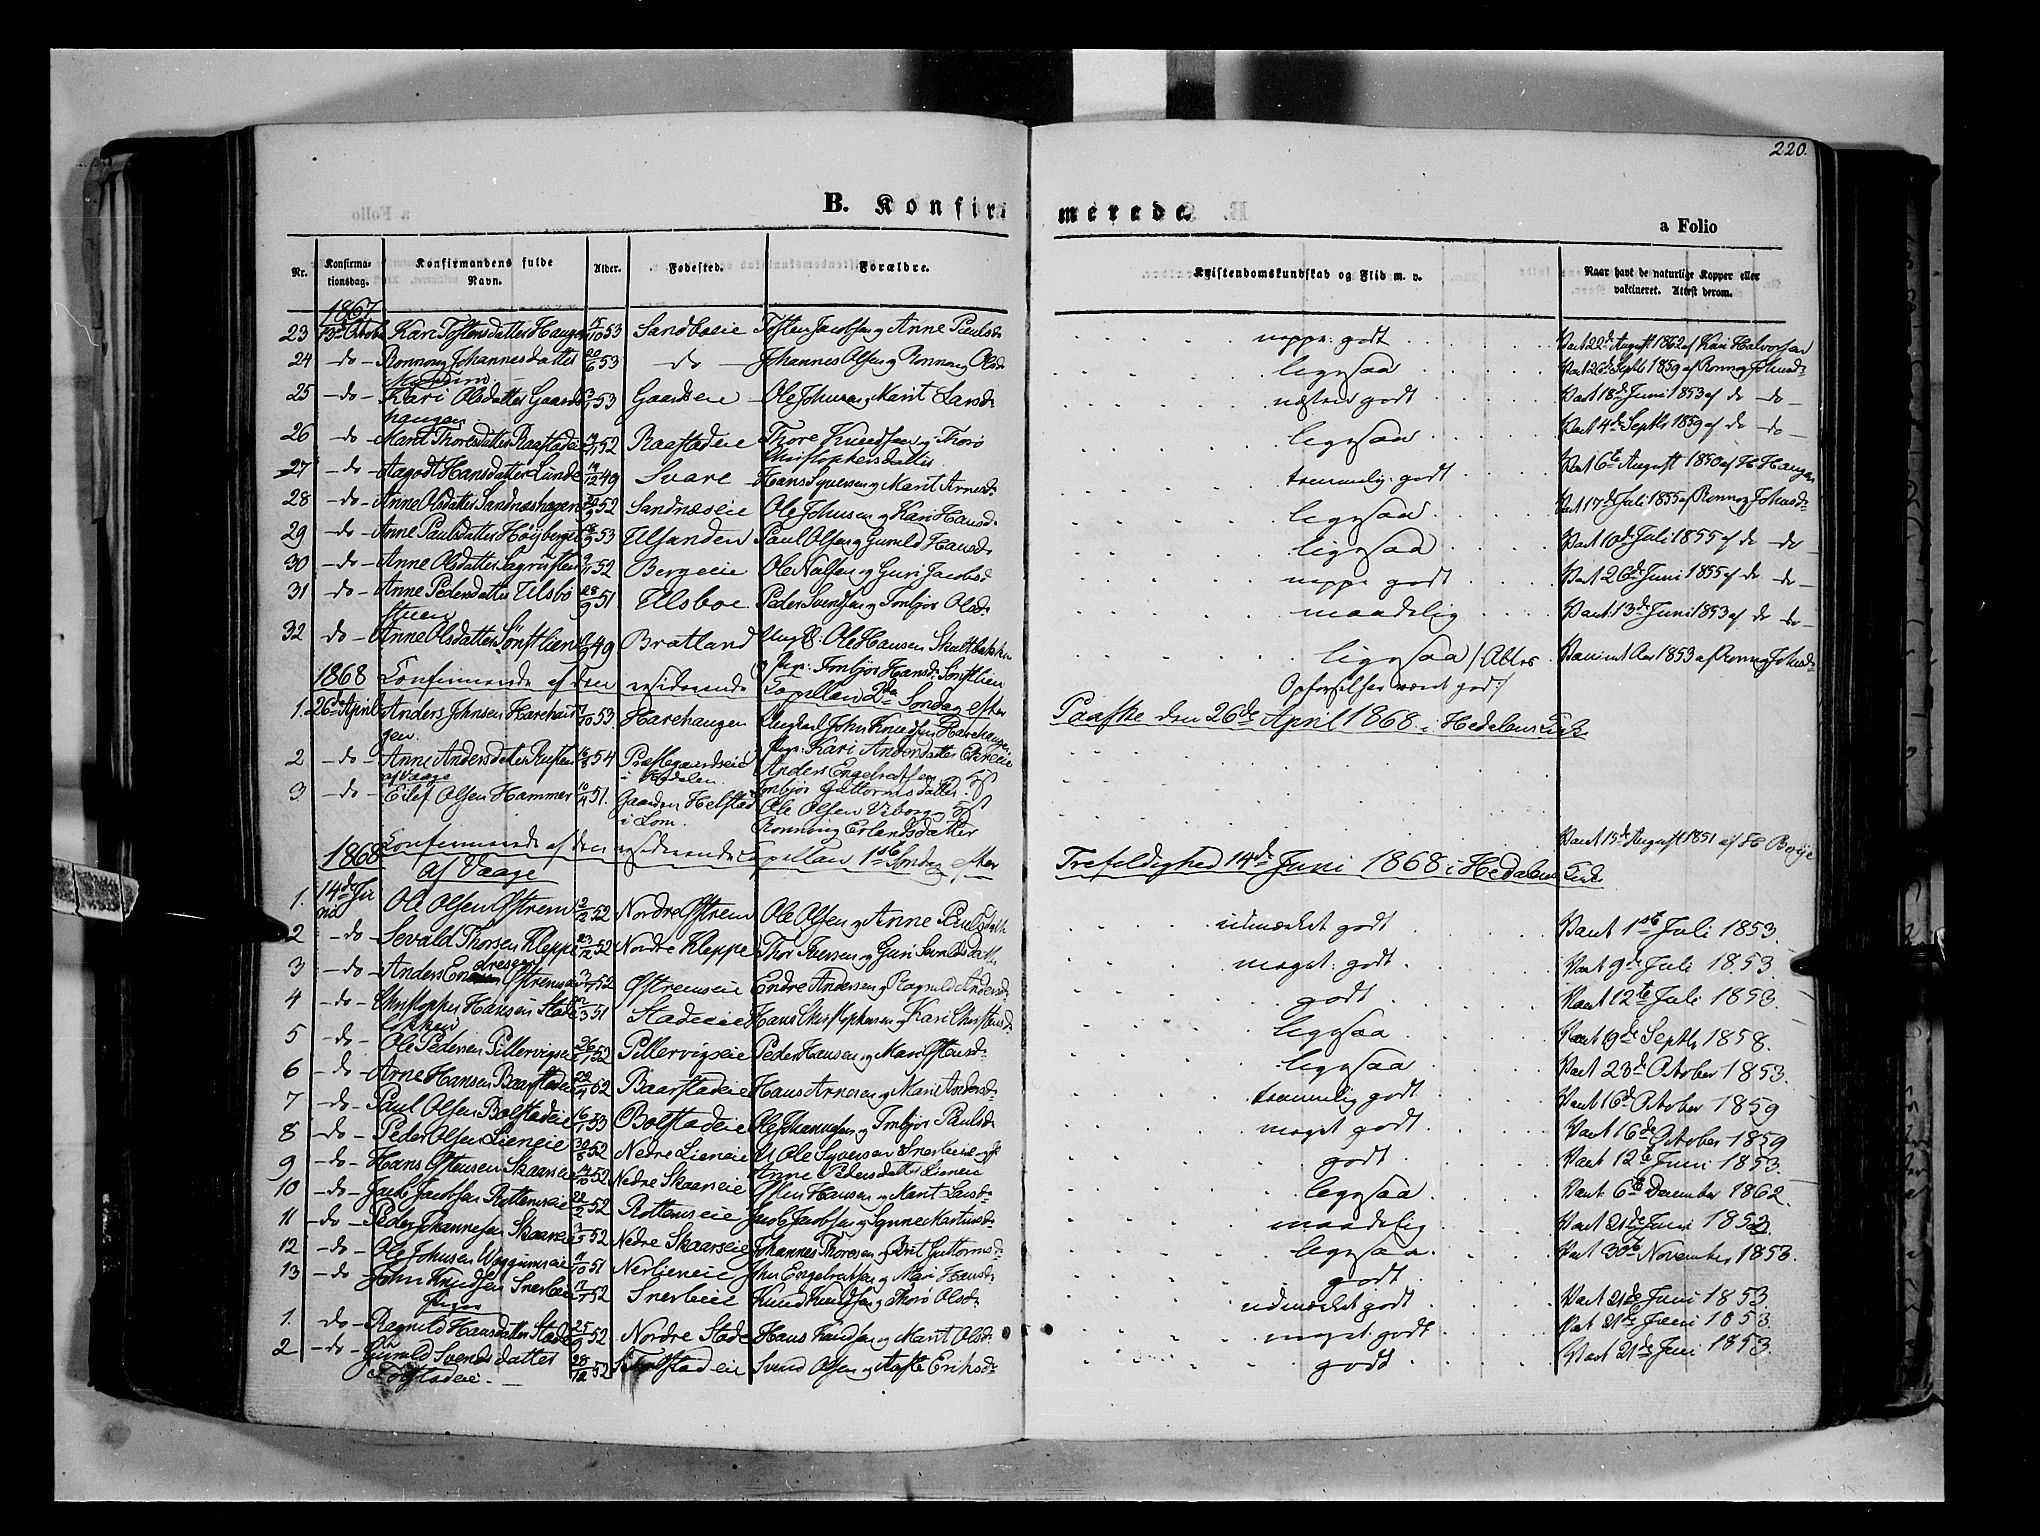 220.
B. Konfirmerede.
a Folio
Nr.
Konfirmationsdag.
Konfirmandens fulde Navn.
Alder.
Fødested.
Forældre.
Kristendomskundskab og Flid m. v.
Naar havt de naturlige Kopper eller vaktineret. Attest derom.
1867
23 13de Octobr Kari Tostensdatter Haugen 53 Sandboeie Tosten Jacobsen og Anne Paulsd: godt Vact 22de August 1862 af Kari Halvorsen
24 -do- Ronnoug Johannesdatter 20/6 53 do Johannes Olsen og Ronnoug Olsd: ligesaa Vact 26de Septbr 1859 af Ronnog Johnsd:
25 -do- Kari Olsdatter Gaardshaugen 53 Gaardseie Ole Johnsen og Marit Larsd: næsten godt Vact 18de Juni 1853 af do do-
26 -do- Marit Thoresdatter Baastadeie 52 Baastadeie Thore Knudsen og Thorø Christophersdatter ligesaa Vact 4de Septbr 1859 af do do-
27 -do- Aagodt Hansdatter Lunde 49 Svare Hans Syversen og Marit Arnesd: temmelig godt Vact 6te August 1850 af H Haugen
28 -do- Anne Olsdatter Sandnæshagen 52 Sandnæseie Ole Johnsen og Kari Hansd: ligesaa Vact 17de Juli 1855 af Ronnog Johnsd:
29 -do- Anne Paulsdatter 53 Ulsanden Paul Olsen og Gunild Hansd: ligesaa Vact 10de Juli 1855 af do do-
30 -do- Anne Olsdatter 52 Bergeeie Ole og Guri Jacobsd godt Vact 26de Juni 1855 af do do-
31 -do- Anne Pedersdatter Ulsbo 28/9 51 Ulsboe Peder Svendsen og Imbjør Olsd: maadelig Vact 13de Juni 1853 af do do-
32 -do- Anne Olsdatter Sönstlien 49 Bratland Ungk. Ole Hansen Skultbakken
Pige: Imbjør Hansd: Sönstlien ligesaa / Ellers Opførselsen været god / Vac int Aar 1853 af Ronnog Johnsd:
1868 Confirmerede af den residerende Capellan 2den Søndag efter Paaske den 26de April 1868 i Hedalens Kirke
1. 26de April Anders Johnsen Harehaugen. 53. Harehaugen Ungkarl John Knudsen Harehaugen
Pige: Kari Andersdatter
2 -do- Anne Andersdatter Rusten af Vaage 54 Præstegaardseie i Hedalen Anders Engebretsen og Imbjør Guttormsdatter
3 -do- Eilef Olsen Hammer 10/4 51. Gaarden Helstad i Lom. Ole Olsen Viborg og Ronnoug Erlandsdatter Vact 15de August 1851 af
1868 Confirmerede af den residerende Capellan 1ste Søndag efter Trefoldighed 14de Juni 1868 i Hedalens Kirke
af Vaage
1. 14de Juni Ole Olsen Østrem 52 Nordre Østrem Ole Olsen og Anne Paulsdatter udmærket godt Vact 1ste Juli 1853.
2 -do- Sevald Thorsen Kleppe 23/12 52 Nordre Kleppe Thor Iversen og Guri Sevaldsdatter meget godt Vact 9de Juli 1853
3 -do- Anders Endresen Østremseie 52 Østremseie Endre Andersen og Ragnild Andersd: godt Vact 12te Juli 1853.
4 -do- Christopher Hansen Stadeløkken 51 Stadeeie Hans Christophersen og Kari Christensd: ligesaa Vact 9de Septbr 1858.
5 -do- Ole Pedersen Pillervigseie 26/7 52 Pillervigseie Peder Hansen og Mari Østensd: ligesaa Vact 23de October 1853.
6 -do- Arne Hansen Baarstadeie 52 Baarstadeie Hans Arnesen og Mari Andersd: temmelig godt Vact 16de October 1859
7 -do- Paul Olsen Bolstadeie 16/1 53 Bolstadeie Ole Johannesen og Imbjør Paulsd: meget godt Vact 16de October 1859
8 -do- Peder Olsen Lieneie 30/8 52 Nedre Lieneie Ole Syversen Snerleeie og Anne Pedersdatter Lieneie godt Vact 12te Juni 1853.
9 -do- Hans Østensen Skaarseie 52 Nedre Skaareie Østen Hansen og Marit Larsd: ligesaa Vact 6te December 1862.
10 -do- Jacob Jacobsen Rottemseie 22/2 52 Rottemseie Jacob Jacobsen og Synne Martinsd: maadelig Vact 21de Juni 1853.
11 -do- Peder Johannesen Skaareie 52 Nedre Skaarseie Johannes Thoresen og Brit Guttormsd: ligesaa. Vact 30te November 1853.
12 -do Ole Johnsen 11/10 51 Nerlieneie John Engebretsen og Mari Hansd: godt Vact 21de Juni 1853.
13 -do John Knudsen Snerleeie 17/7 52 Snerleeie Knud Knudsen og Thorø Olsd: udmærket godt Vact 21de Juni 1853.
Piger
1. -do- Ragnild Hansdatter Stade 25/9 52 Nordre Stade Hans Knudsen og Marit Olsd: meget godt Vact 21de Juni 1853.
2 -do- Gunild Svendsdatter Tolstadeie. 28/12 52 Tolstadeie Svend Olsen og Aaste Eriksd: godt